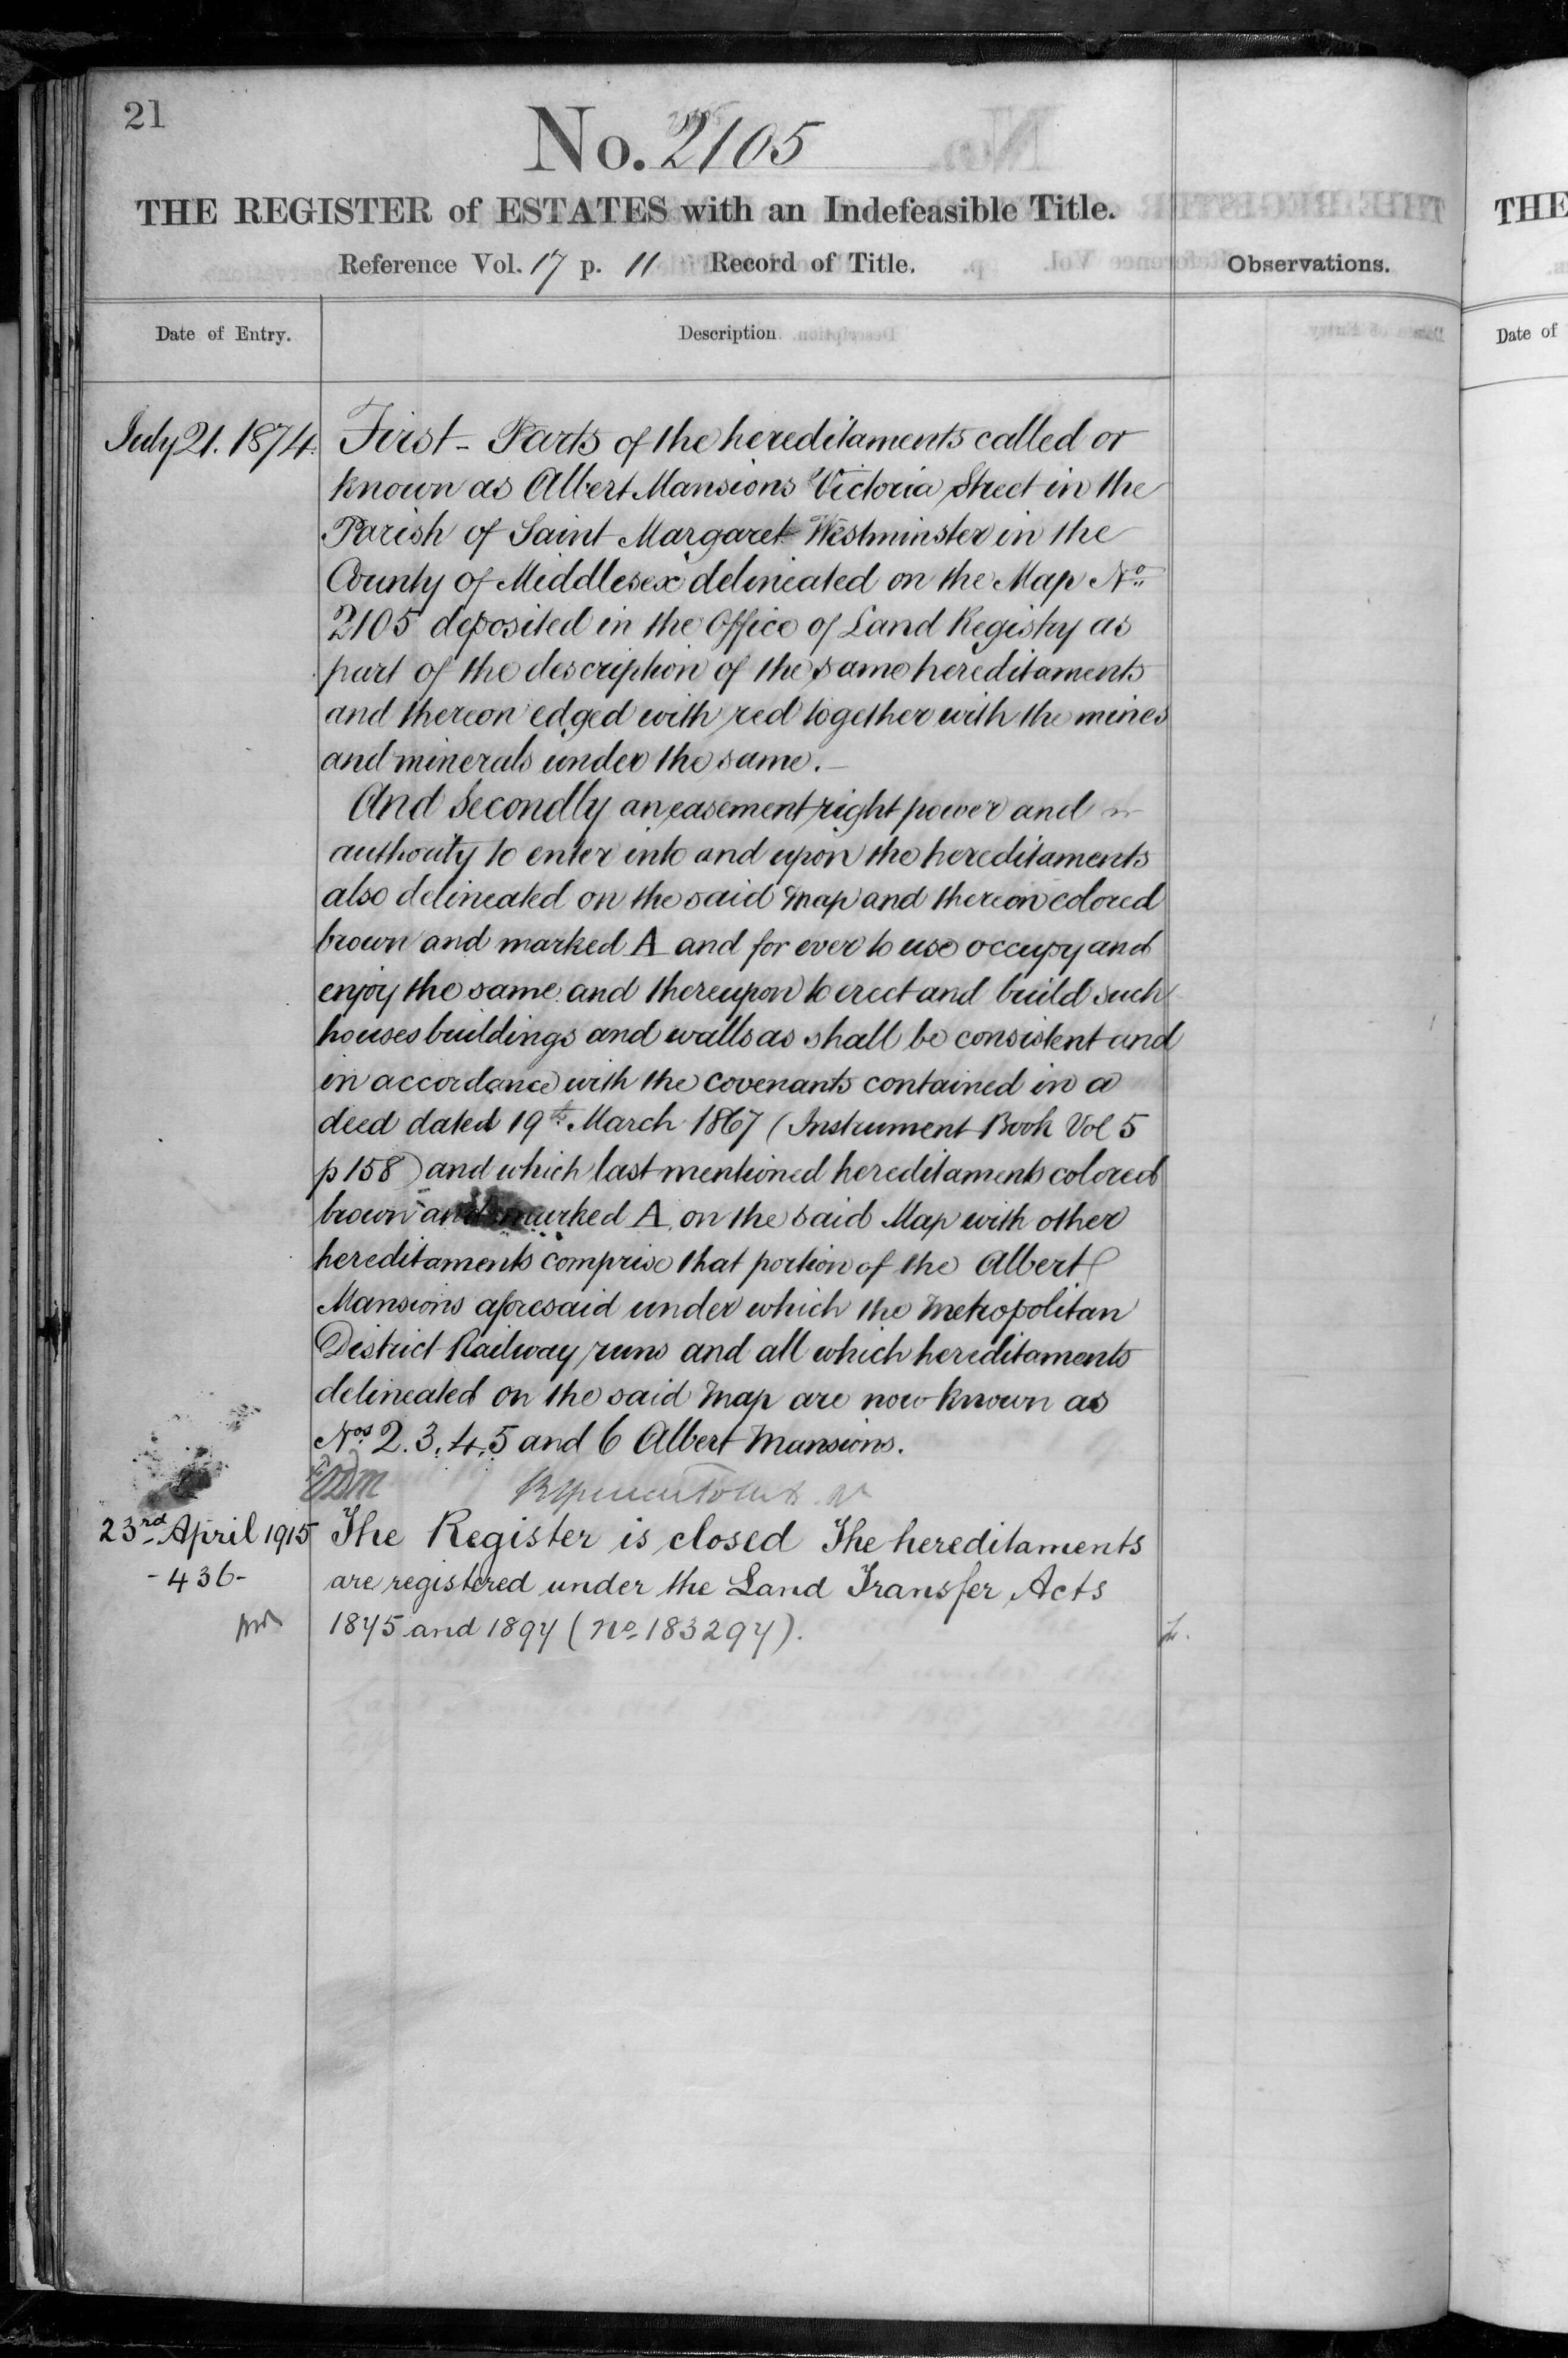 21
No. 2105
THE REGISTER of ESTATES with an Indefeasible Title.
Reference Vol. 17 p. 11 Record of Title.
Observations.
Date of Entry.
Description
July 21. 1874.
First - Parts of the hereditaments called or
known as Albert Mansions Victoria Street in the
Parish of Saint Margaret Westminster in the
County of Middlesex delineated on the Map No.
2105 deposited in the Office of Land Registry as
part of the description of the same hereditaments
and thereon edged with red together with the mines
and minerals under the same.
And Secondly an easement right power and
authority to enter into and upon the hereditaments
also delineated on the said Map and thereon colored
brown and marked A and for ever to use occupy and
enjoy the same and thereupon to erect and build such
houses buildings and walls as shall be consistent and
in accordance with the covenants contained in a
deed dated 19th March 1867 (Instrument Book Vol 5
p 158) and which last mentioned hereditaments colored
brown and marked A on the said Map with other
hereditaments comprise that portion of the Albert
Mansions aforesaid under which the Metropolitan
District Railway runs and all which hereditaments
delineated on the said Map are now known as
Nos. 2. 3. 4. 5 and 6 Albert Mansions.
23rd April 1915
- 436 -
The Register is closed The hereditaments
are registered under the Land Transfer Acts
1875 and 1897 (No. 183297).
THE
Date of